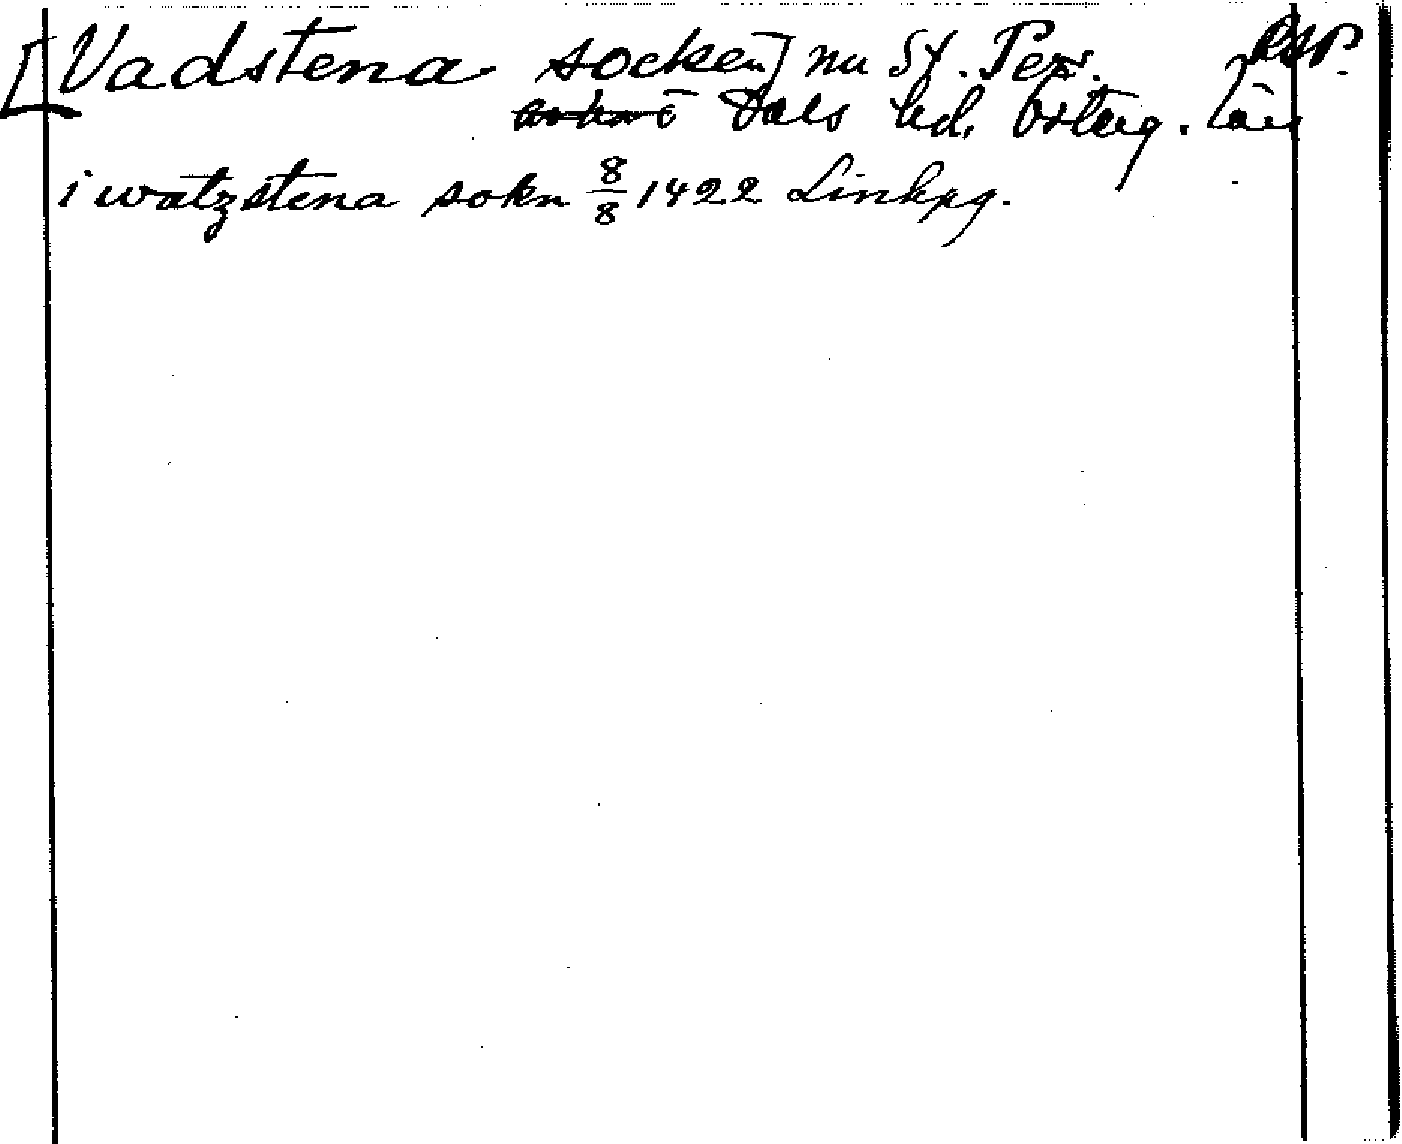 [Vadstena socken] nu St. Per.
Dals hd. Österg. län
i watzstena sokn 8/8 1422 Linkpg.